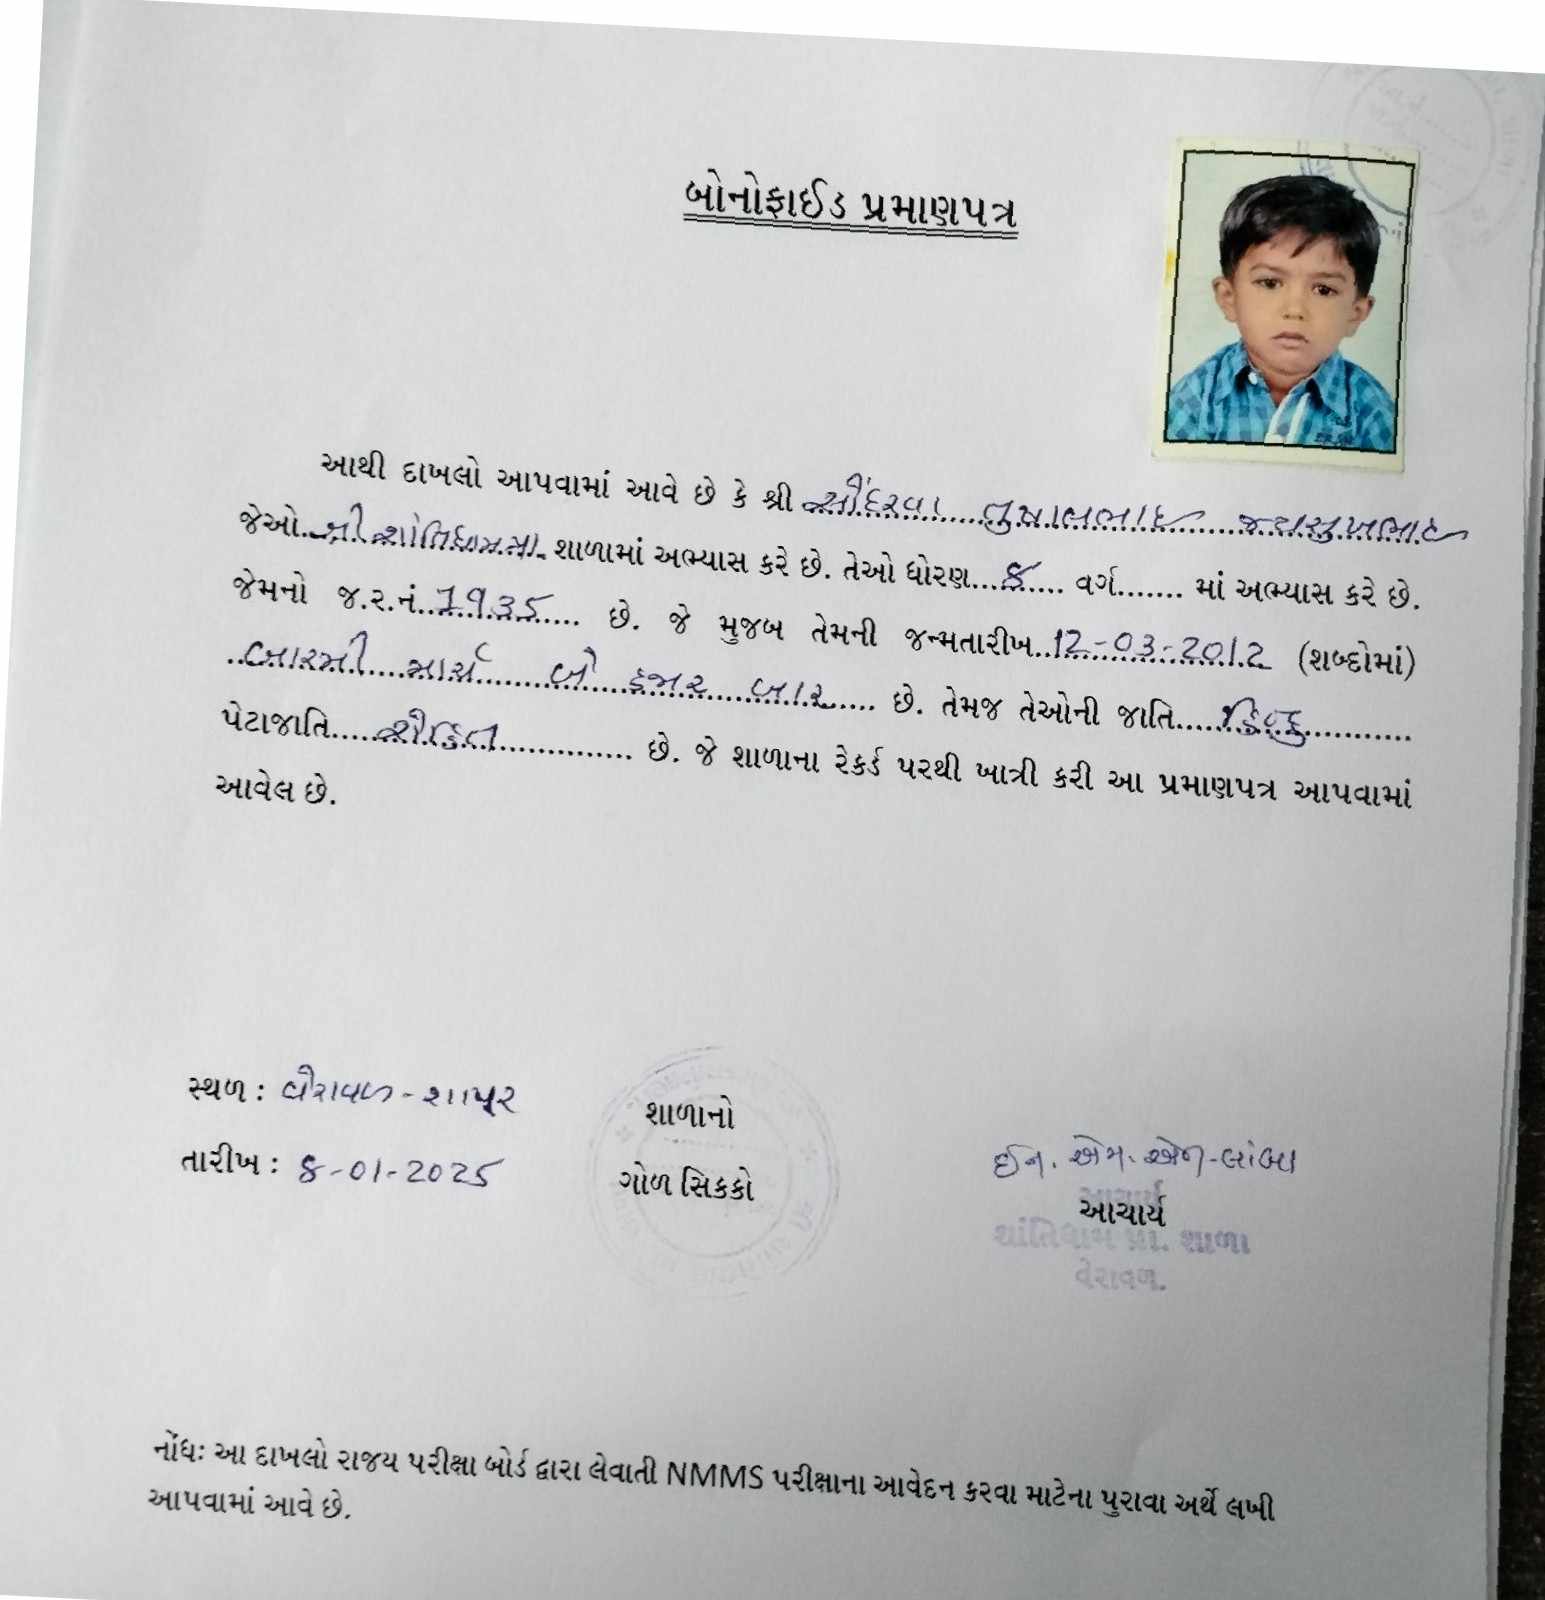 બોનોફાઈડ પ્રમાણપત્ર
આથી દાખલો આપવામાં આવે છે કે શ્રી સોંદરવા તુષાલભાઇ જયસુખભાઇ
જેઓ શ્રી શાંતિધામ પ્રા. શાળામાં અભ્યાસ કરે છે. તેઓ ધોરણ...8.... વર્ગ....... માં અભ્યાસ કરે છે.
જેમનો જ.ર.નં..1935..... છે. જે મુજબ તેમની જન્મતારીખ..12-03-2012 (શબ્દોમાં)
..બારમી....માર્ચ......બે હજાર....બાર..... છે. તેમજ તેઓની જાતિ.....હિન્દુ..........
પેટાજાતિ.................... છે. જે શાળાના રેકર્ડ પરથી ખાત્રી કરી આ પ્રમાણપત્ર આપવામાં
આવેલ છે.
સ્થળ : વેરાવળ-શાપુર
તારીખ : 8-01-2025
શાળાનો
ગોળ સિકકો
ઈન. એમ. એન. લાંબા
આચાર્ય
આચાર્ય
શાંતિધામ પ્રા. શાળા
વેરાવળ.
નોંધઃ આ દાખલો રાજય પરીક્ષા બોર્ડ દ્વારા લેવાતી NMMS પરીક્ષાના આવેદન કરવા માટેના પુરાવા અર્થે લખી
આપવામાં આવે છે.